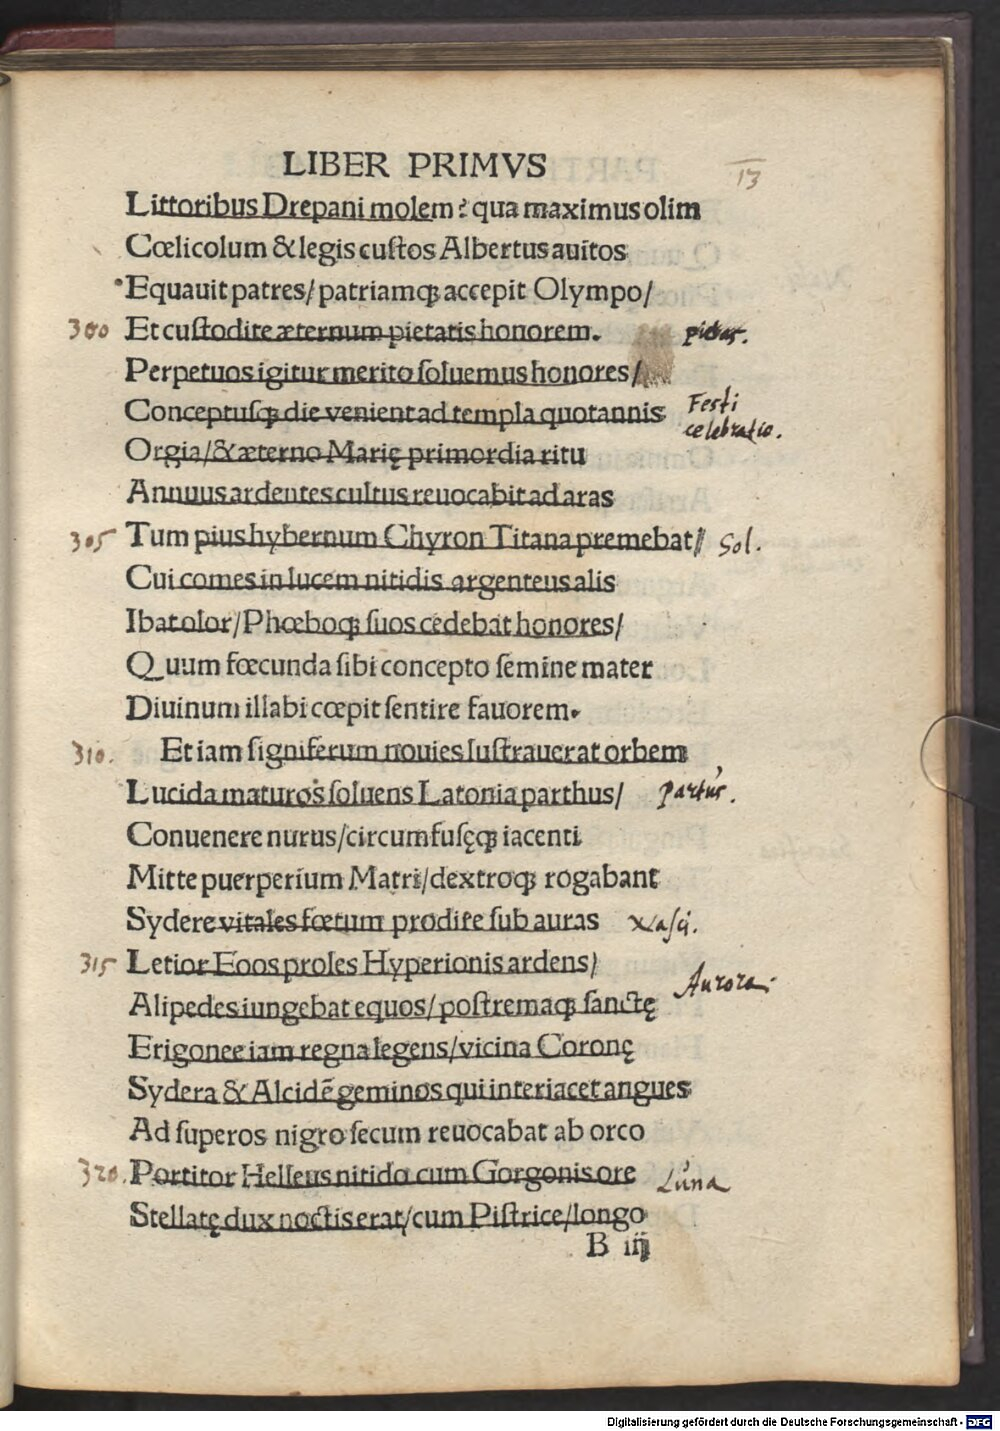 LIBER PRIMVS
13
Littoribus Drepani molem? qua maximus olim
Cœlicolum & legis custos Albertus auitos
Equauit patres/ patriamq; accepit Olympo/
300 Et custodite æternum pietatis honorem. pietas.
Perpetuos igitur merito soluemus honores/
Conceptusq; die venient ad templa quotannis Festi
celebratio.
Orgia/ & æterno Marię primordia ritu
Annuus ardentes cultus reuocabit ad aras
305 Tum pius hybernum Chyron Titana premebat/ Sol.
Cui comes in lucem nitidis argenteus alis
Ibat olor/ Phœboq; suos cedebat honores/
Quum fœcunda sibi concepto semine mater
Diuinum illabi cœpit sentire fauorem.
310. Et iam signiferum nouies lustrauerat orbem
Lucida maturos soluens Latonia parthus/ partus.
Conuenere nurus/ circumfusęq; iacenti
Mitte puerperium Matri/ dextroq; rogabant
Sydere vitales fœtum prodire sub auras Nasci.
315 Letior Eoos proles Hyperionis ardens/
Aurora.
Alipedes iungebat equos/ postremaq; sanctę
Erigonee iam regna legens/ vicina Coronę
Sydera & Alcidē geminos qui interiacet angues
Ad superos nigro secum reuocabat ab orco
320. Portitor Helleus nitido cum Gorgonis ore Luna
Stellatę dux noctis erat/ cum Pistrice/ longo
B iij
Digitalisierung gefördert durch die Deutsche Forschungsgemeinschaft - DFG